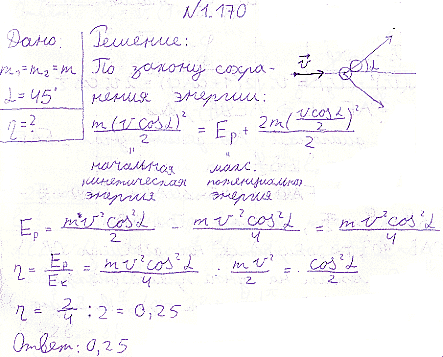 N1.170
Дано:
m₁=m₂=m
α=45°
η=?
Решение:
По закону сохра-
нения энергии:
m(v cosα)²/2 = Eр + 2m(v cosα/2)²/2
" "
начальная макс.
кинетическая потенциальная
энергия энергия
v⃗ α
Eр = mv²cos²α/2 - mv²cos²α/4 = mv²cos²α/4
η = Eр/Eк = mv²cos²α/4 · mv²/2 = cos²α/2
η = 2/4 : 2 = 0,25
Ответ: 0,25